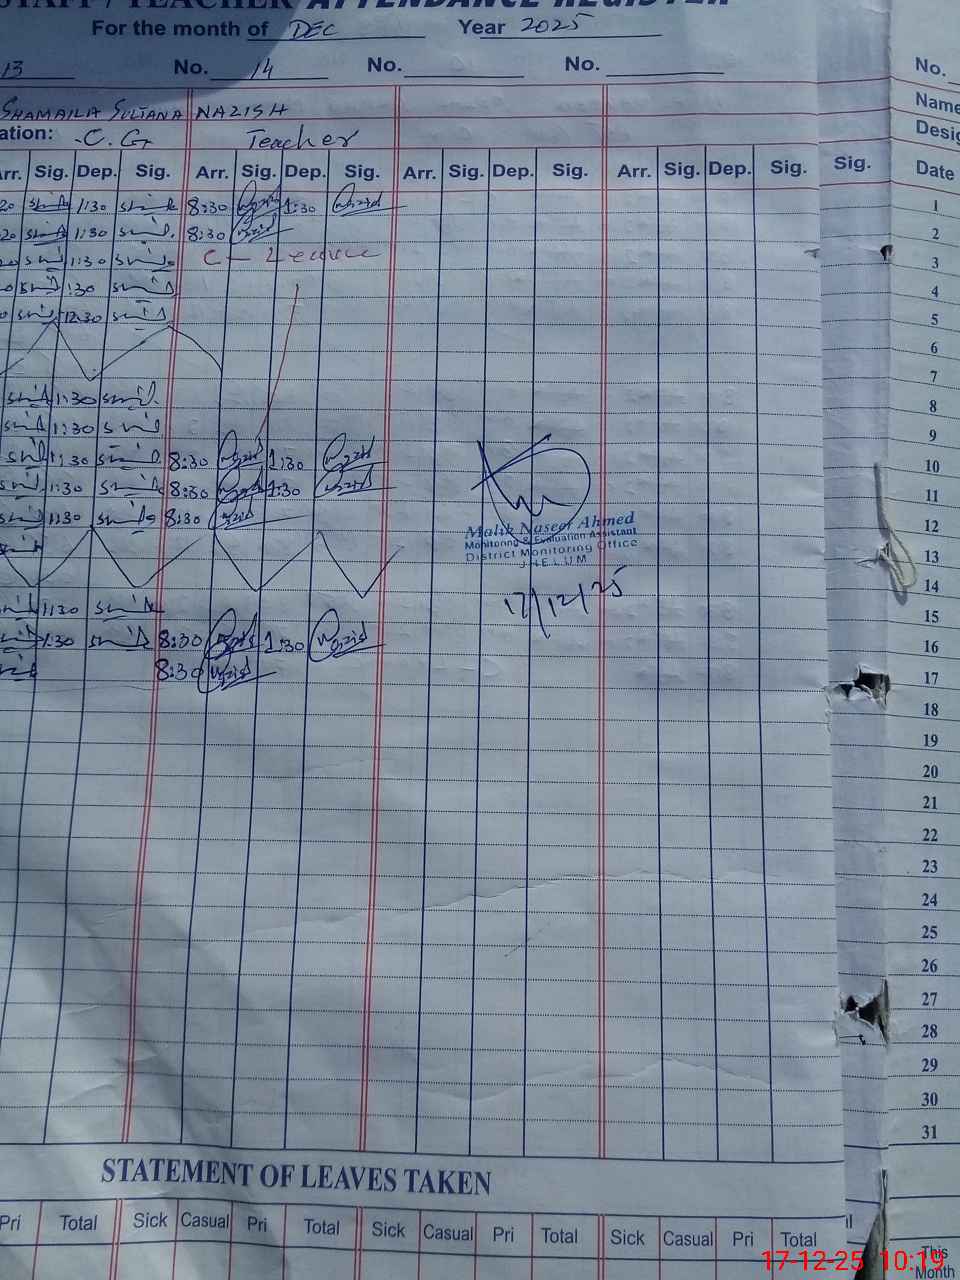 STAFF / TEACHER ATTENDANCE REGISTER
For the month of DEC Year 2025
13 No. 14 No. No. No.
SHAMAILA SULTANA NAZISH Name
ation: C.G Teacher Desig
Arr. Sig. Dep. Sig. Arr. Sig. Dep. Sig. Arr. Sig. Dep. Sig. Arr. Sig. Dep. Sig. Sig. Date
20 1:30 8:30 1:30 1
20 1:30 8:30 2
1:30 C - Leave 3
1:30 4
12:30 5
6
7
1:30 8
1:30 9
1:30 8:30 1:30 10
1:30 8:30 1:30 11
1:30 8:30 12
Malik Naseer Ahmed
Monitoring & Evaluation Assistant
District Monitoring Office
JHELUM
13
14
17/12/25
1:30 15
1:30 8:30 1:30 16
8:30 17
18
19
20
21
22
23
24
25
26
27
28
29
30
31
STATEMENT OF LEAVES TAKEN
Pri Total Sick Casual Pri Total Sick Casual Pri Total Sick Casual Pri Total
This
Month
17-12-25 10:19